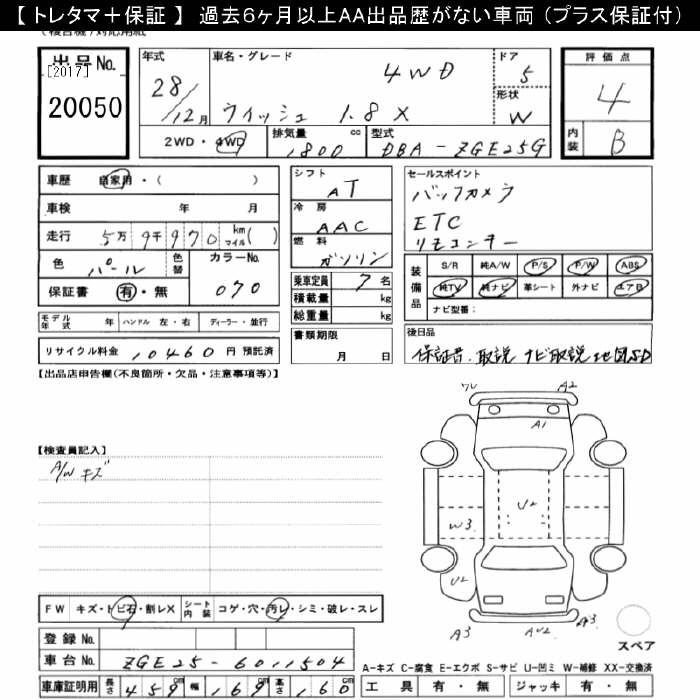 【 トレタマ＋保証 】 過去6ヶ月以上AA出品歴がない車両（プラス保証付）
出品No.
[2017]
20050
年式
28/12月
車名・グレード
4WD
ウィッシュ 1.8X
ドア
5
形状
W
評価点
4
内装
B
2WD・4WD
排気量
1800 cc
型式
DBA-ZGE25G
車歴 自家用・（ ）
車検 年 月
走行 5万9千970 km マイル( )
色 パール 色替
カラーNo.
070
保証書 有・無
シフト
AT
冷房
AAC
燃料
ガソリン
乗車定員 7名
積載量 kg
総重量 kg
セールスポイント
バックカメラ
ETC
リモコンキー
装備品
S/R 純A/W P/S P/W ABS
純TV 純ナビ 革シート 外ナビ エアB
ナビ型番：
モデル年式 年 ハンドル 左・右 ディーラー・並行
リサイクル料金 10460 円 預託済
書類期限
月 日
後日品
保証書、取説 ナビ取説 地図SD
【出品店申告欄（不良箇所・欠品・注意事項等）】
【検査員記入】
A/W キズ
A2
A1
U2
W3
U2
A3
AU2
A3
スペア
FW キズ・トビ石・割レX シート内装 コゲ・穴・汚レ・シミ・破レ・スレ
登録No.
車台No. ZGE25-6011504
A-キズ C-腐食 E-エクボ S-サビ U-凹ミ W-補修 XX-交換済
車庫証明用 長さ 459cm 幅 169cm 高さ 160cm
工具 有・無 ジャッキ 有・無